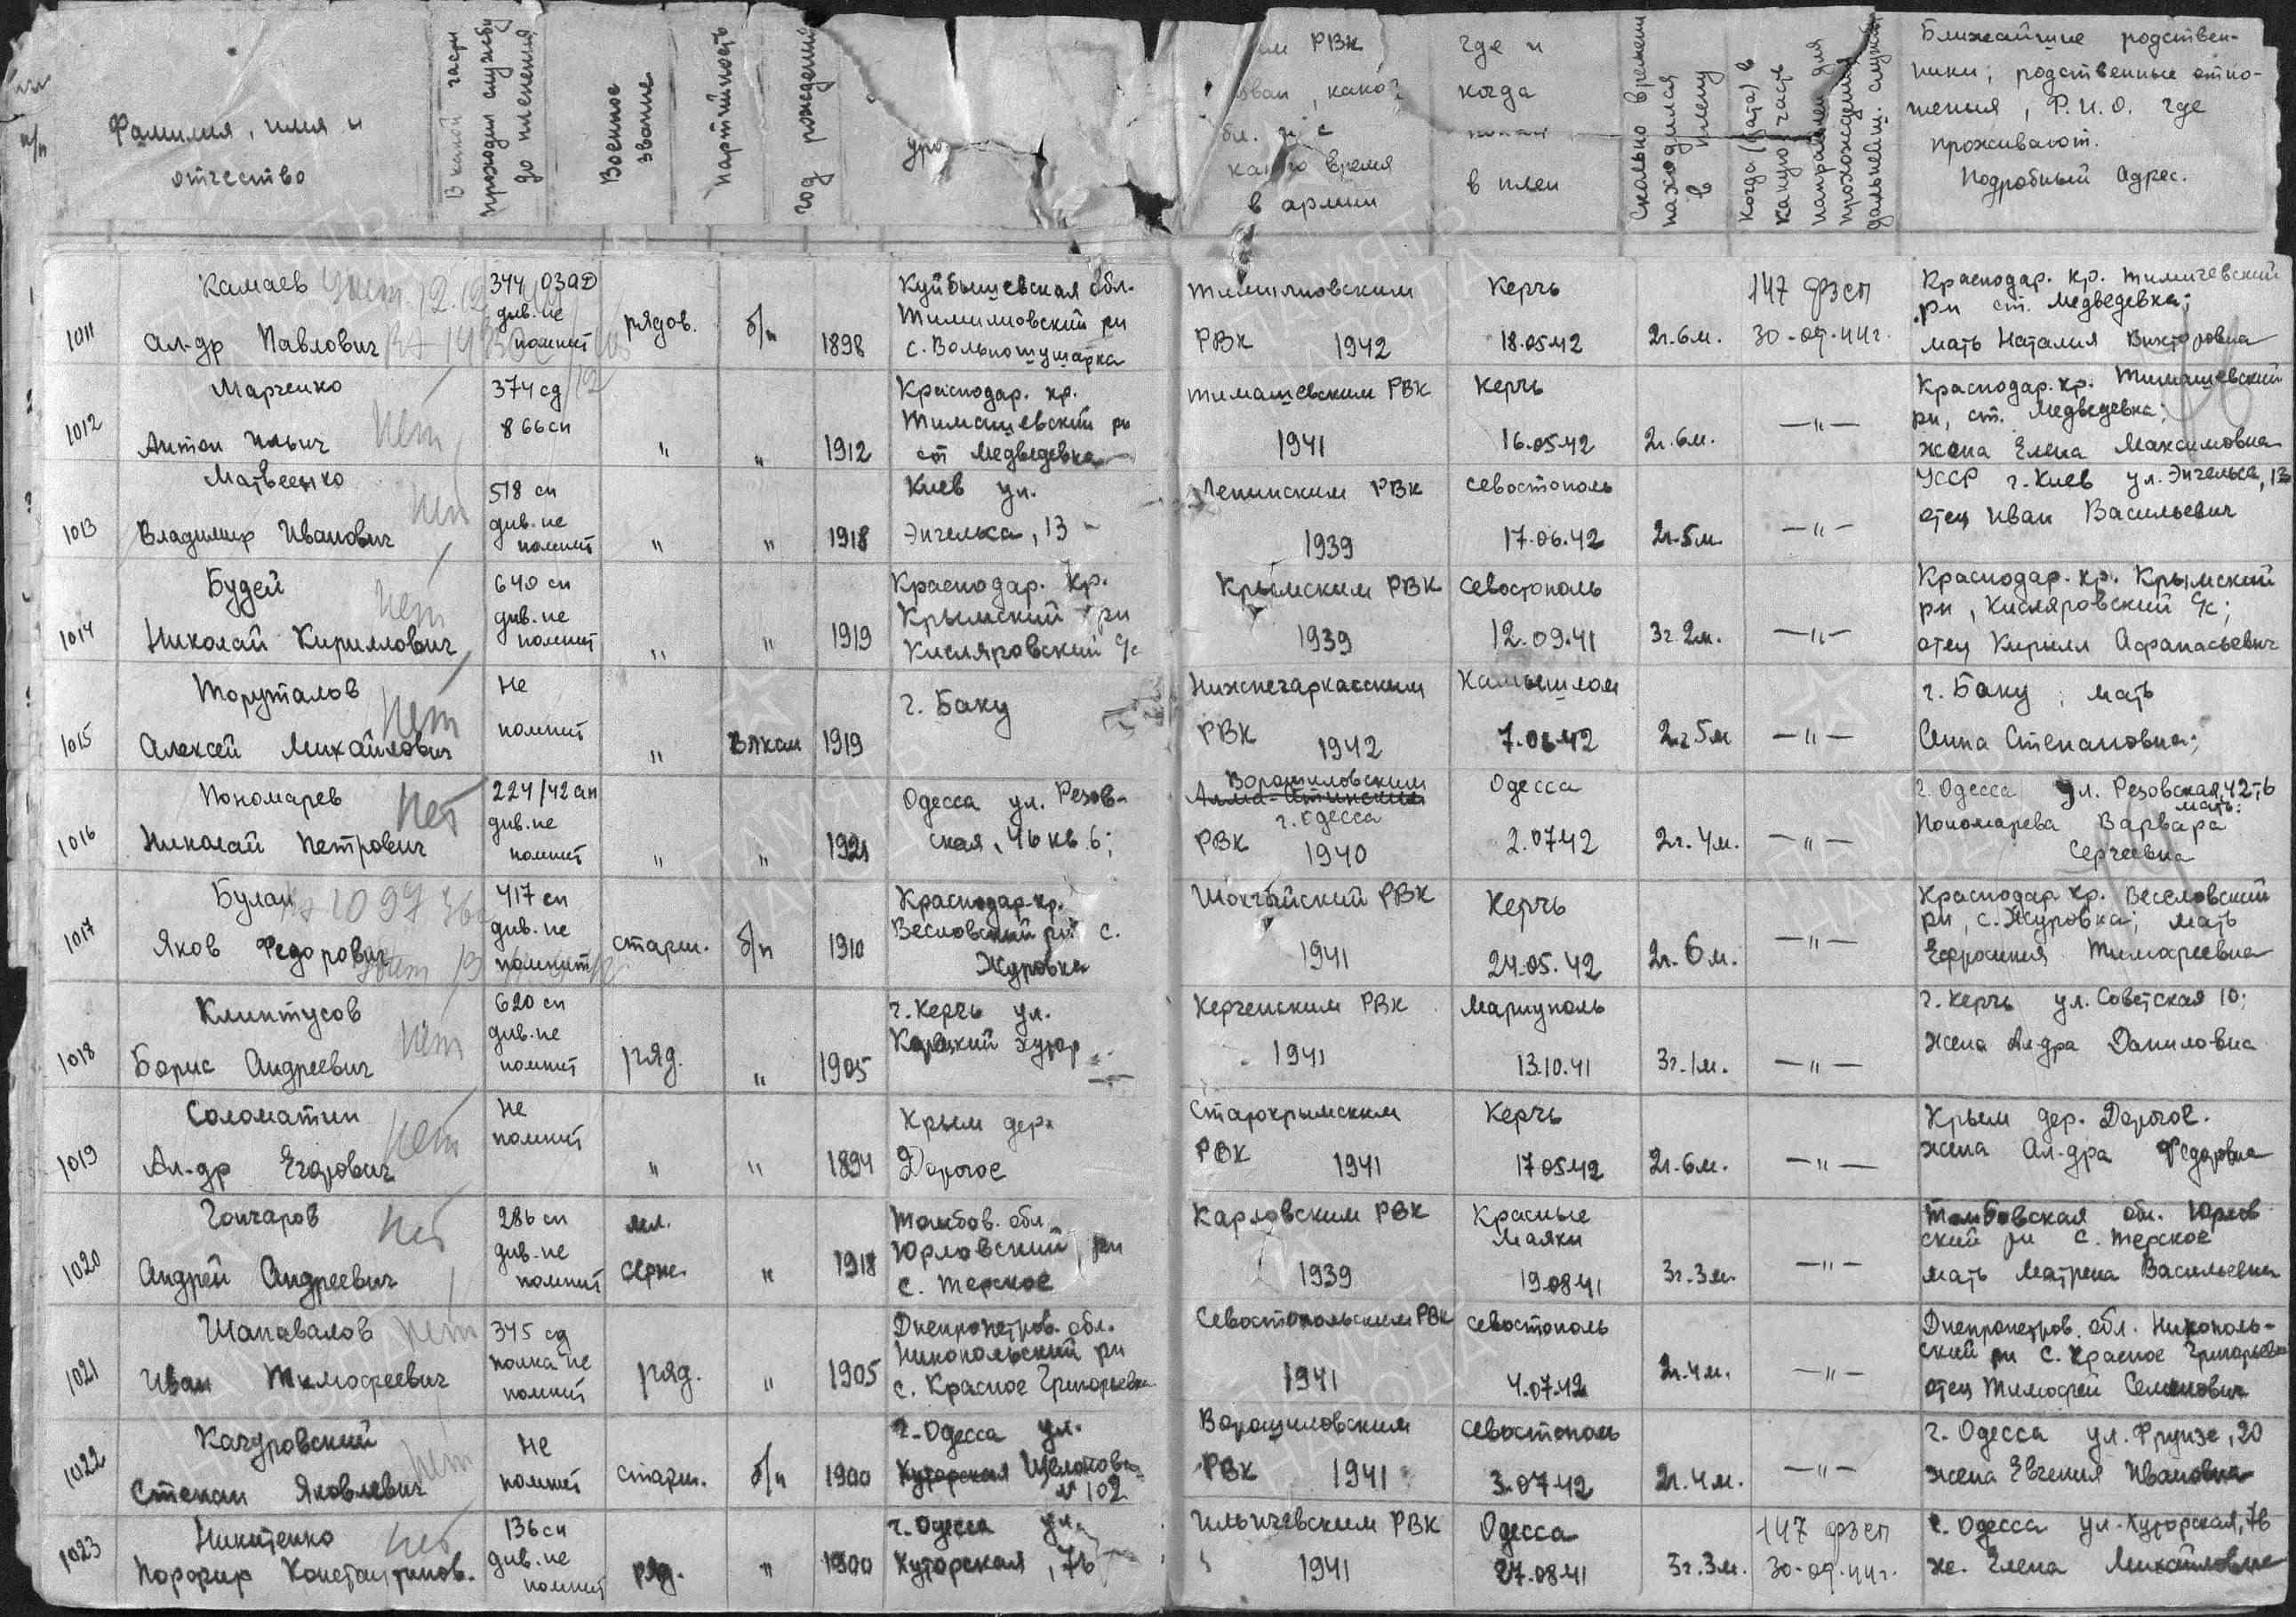 п/п
Фамилия, имя и
отчество
В какой части
проходил службу
до пленения
Военное
звание
Партийность
Год рождения
уро
РВК
зван, какой
бл. и с
какого время
в армии
где и
когда
попал
в плен
Сколько времени
находился
в плену
Когда (дата) в
какую часть
направлен для
прохождения
дальнейш. службы
Ближайшие родствен-
ники, родственные отно-
шения, Ф.И.О. где
проживают.
Подробный адрес.
1011
Камаев
Ал-др Павлович
344 ОЗАД
див. не
помнит
рядов.
б/п
1898
Куйбышевская обл.
с.
РВК 1942
Керчь
18.05.42
2г.6м.
147 фзсп
30.09.44г.
Краснодар. кр.
рн ст. Медведевка;
мать Наталия Викторовна
1012
Марченко
Антон Ильич
нет
374 сд
866 сп
"
"
1912
Краснодар. кр.
Тимашевский рн
ст Медведевка
Тимашевским РВК
1941
Керчь
16.05.42
2г.6м.
—"—
Краснодар. кр. Тимашевский
рн, ст. Медведевка;
жена Елена Максимовна
1013
Матвеенко
Владимир Иванович
нет
518 сп
див. не
помнит
"
"
1918
Киев ул.
Энгелька, 13
Ленинским РВК
1939
Севостополь
17.06.42
2г.5м.
—"—
УССР г. Киев ул. Энгельса, 13
отец Иван Васильевич
1014
Будей
Николай Кириллович
нет
640 сп
див. не
помнит
"
"
1919
Краснодар. кр.
Крымский рн
Кисляровский с/с
Крымским РВК
1939
Севостополь
12.09.41
3г.2м.
—"—
Краснодар. кр. Крымский
рн, Кисляровский с/с;
отец Кирилл Афанасьевич
1015
Торуталов
Алексей Михайлович
нет
Не
помнит
"
Влксм
1919
г. Баку
РВК 1942
Камышлом
7.06.42
2г.5м
—"—
г. Баку ; мать
Анна Степановна;
1016
Пономарев
Николай Петрович
нет
224/42 сп
див. не
помнит
"
"
1921
Одесса ул. Резов-
ская, 46 кв 6;
Ворошиловским
Алма-Атинским
г. Одесса
РВК 1940
Одесса
2.07.42
2г.4м.
—"—
г. Одесса ул. Резовская,
мать:
Пономарева Варвара
Сергеевна
1017
Булан
Яков Федорович
417 сп
див. не
помнит
старш.
б/п
1910
Краснодар. кр.
Весловский рн с.
Журовка
РВК
1941
Керчь
24.05.42
2г.6м.
—"—
Краснодар кр. Веселовский
рн, с. Журовка; мать
Ефросиния Тимофеевна
1018
Климтусов
Борис Андреевич
нет
620 сп
див. не
помнит
ряд.
"
1905
г. Керчь ул.
хутор
Керченским РВК
1941
Мариуполь
13.10.41
3г.1м.
—"—
г. Керчь ул. Советская 10;
жена Ал-дра Даниловна
1019
Соломатин
Ал-др Егорович
нет
Не
помнит
"
"
1894
Крым дер.
Дорогое
Старокрымским
РВК 1941
Керчь
17.05.42
2г.6м.
—"—
Крым дер. Дорогое.
жена Ал-дра Федоровна
1020
Гончаров
Андрей Андреевич
нет
286 сп
див. не
помнит
мл.
серж.
"
1918
Тамбов. обл.
Юрловский рн
с. Терское
Карловским РВК
1939
Красные
Маяки
19.08.41
3г.3м.
—"—
Тамбовская обл. Юрлов
ский рн с. Терское
мать Матрена Васильевна
1021
Шаповалов
Иван Тимофеевич
нет
345 сд
полка не
помнит
ряд.
"
1905
Днепропетров. обл.
Никопольский рн
с. Красное Григорьевка
Севостопольским РВК
1941
Севостополь
4.07.42
2г.4м.
—"—
Днепропетров. обл. Никополь-
ский рн с. Красное Григорьевка
отец Тимофей Семенович
1022
Качуровский
Степан Яковлевич
нет
Не
помнит
старш.
б/п
1900
г. Одесса ул.
Хуторская
№ 102
Ворошиловским
РВК 1941
Севостополь
3.07.42
2г.4м.
—"—
г. Одесса ул. Фрунзе, 20
жена Евгения Ивановна
1023
Никитенко
Порфир Константинов.
нет
136 сп
див. не
помнит
ряд.
"
1900
г. Одесса ул.
Хуторская, 76
Ильичевским РВК
1941
Одесса
27.08.41
3г.3м.
147 фзсп
30.09.44г.
г. Одесса ул. Хуторская, 76
ж. Елена Михайловна